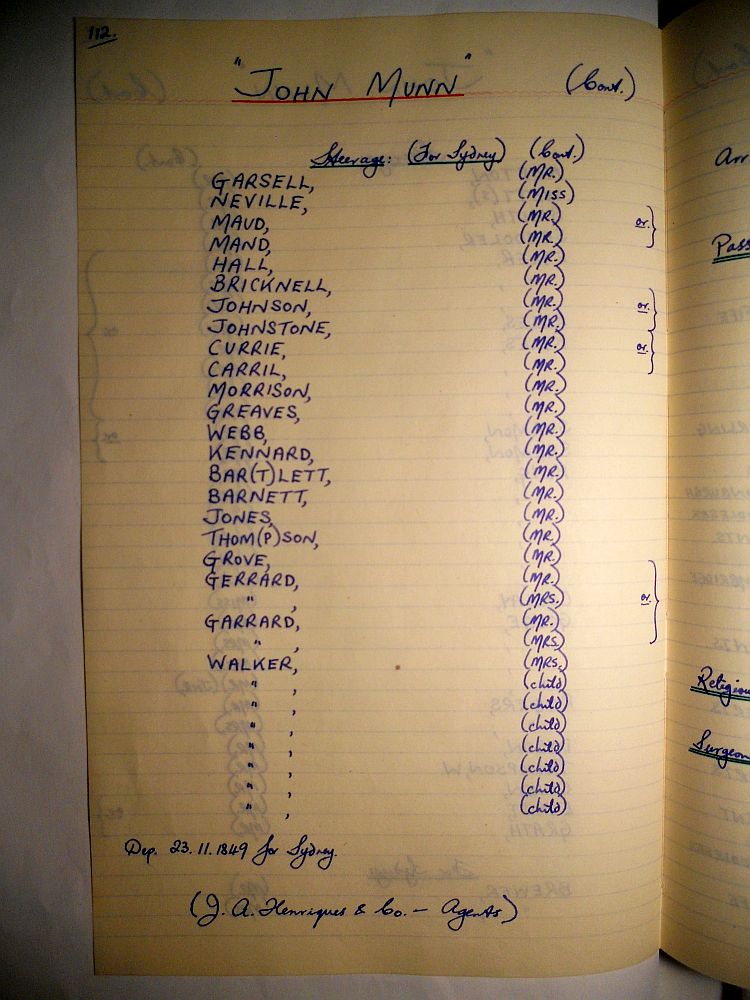 112.
"JOHN MUNN" (Cont.)
Steerage: (For Sydney) (Cont.)
GARSELL, (MR.)
NEVILLE, (MISS)
MAUD, (MR.) or
MAND, (MR.)
HALL, (MR.)
BRICKNELL, (MR.)
JOHNSON, (MR.) or
JOHNSTONE, (MR.)
CURRIE, (MR.) or
CARRIL, (MR.)
MORRISON, (MR.)
GREAVES, (MR.)
WEBB, (MR.)
KENNARD, (MR.)
BAR(T)LETT, (MR.)
BARNETT, (MR.)
JONES, (MR.)
THOM(P)SON, (MR.)
GROVE, (MR.)
GERRARD, (MR.)
" , (MRS.) or
GARRARD, (MR.)
" , (MRS.)
WALKER, (MRS.)
" , (child)
" , (child)
" , (child)
" , (child)
" , (child)
" , (child)
" , (child)
Dep. 23.11.1849 for Sydney.
(J. A. Henriques & Co. – Agents)
Arr
Pass
Religiou
Surgeon